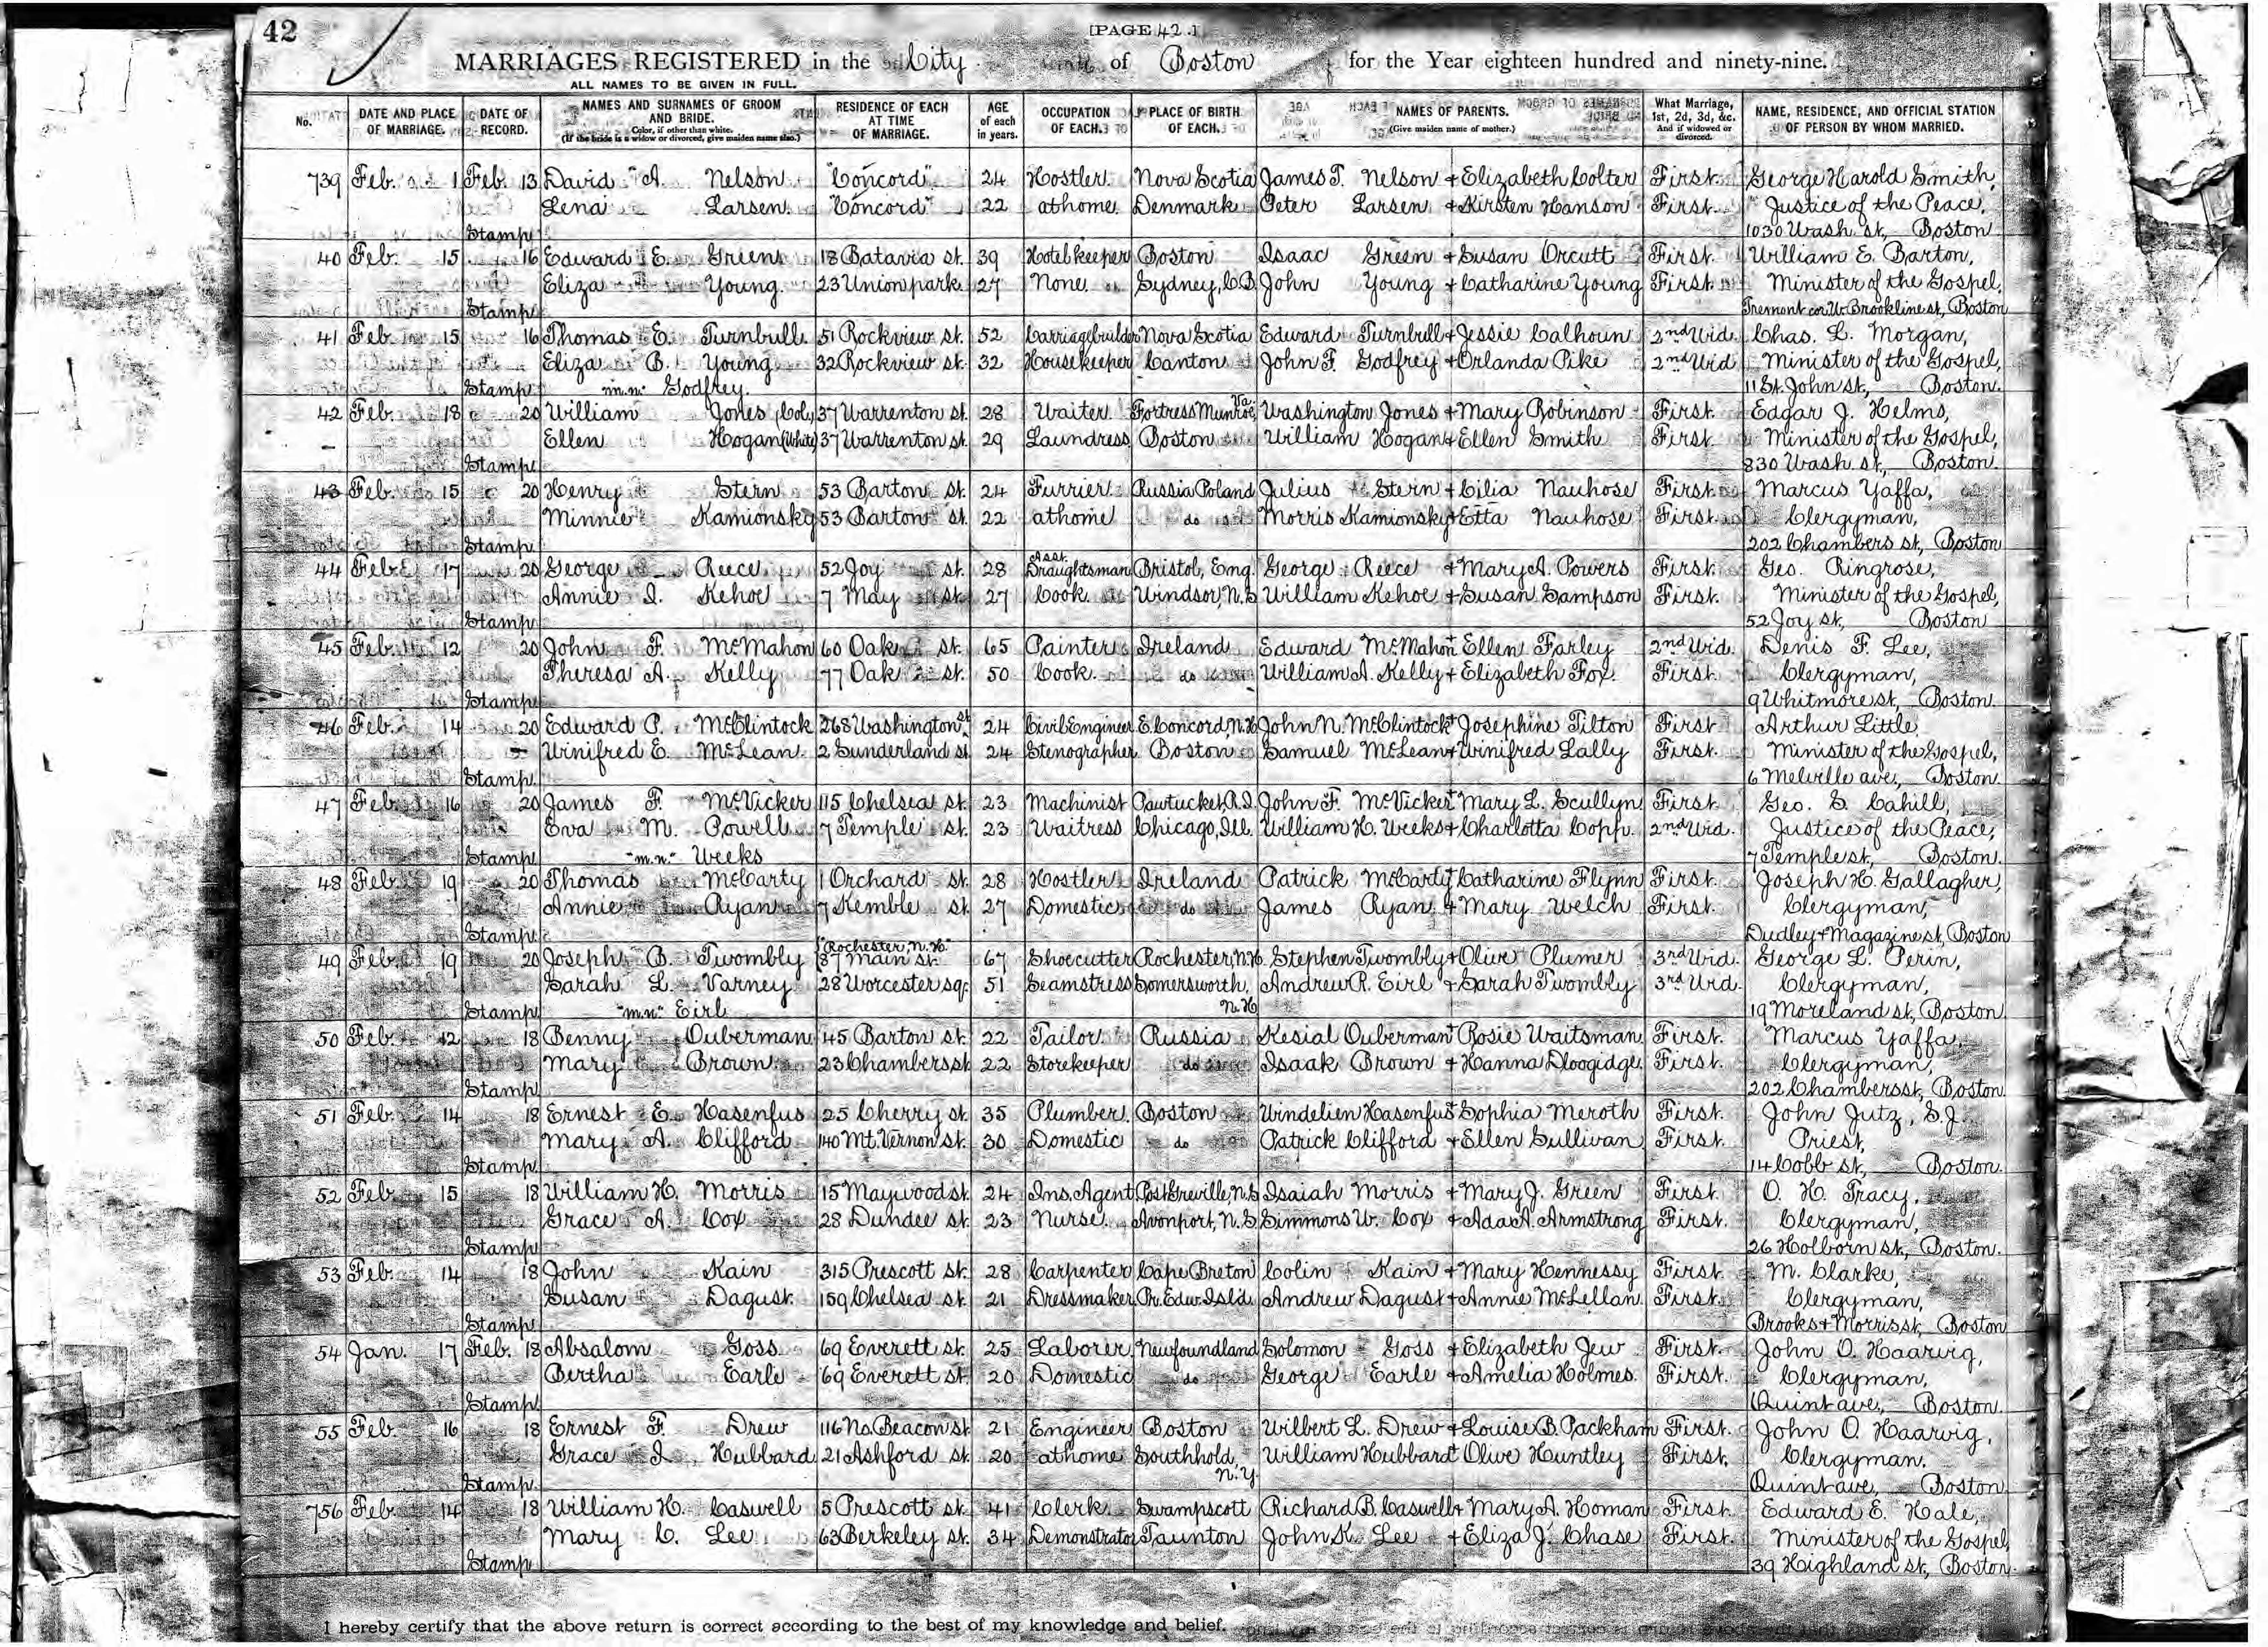 42
[PAGE 42.]
MARRIAGES REGISTERED in the City of Boston for the Year eighteen hundred and ninety-nine.
ALL NAMES TO BE GIVEN IN FULL.
No. DATE AND PLACE OF MARRIAGE. DATE OF RECORD. NAMES AND SURNAMES OF GROOM AND BRIDE. Color, if other than white. (If the bride is a widow or divorced, give maiden name also.) RESIDENCE OF EACH AT TIME OF MARRIAGE. AGE of each in years. OCCUPATION OF EACH. PLACE OF BIRTH OF EACH. NAMES OF PARENTS. (Give maiden name of mother.) What Marriage, 1st, 2d, 3d, &c. And if widowed or divorced. NAME, RESIDENCE, AND OFFICIAL STATION OF PERSON BY WHOM MARRIED.
739 Feb. 1 Feb. 13 David A. Nelson "Concord" 24 Hostler Nova Scotia James T. Nelson + Elizabeth Colter First. George Harold Smith,
Lena Larsen "Concord" 22 at home Denmark Peter Larsen + Kirsten Hanson First. Justice of the Peace,
Stamp 1030 Wash. st., Boston
40 Feb. 15 16 Edward E. Green 18 Batavia st. 39 Hotel keeper Boston Isaac Green + Susan Orcutt First. William E. Barton,
Eliza Young 23 Union park 27 None Sydney, C.B. John Young + Catharine Young First. Minister of the Gospel,
Stamp Tremont cor. W. Brookline st., Boston
41 Feb. 15 16 Thomas E. Turnbull 51 Rockview st. 52 Carriage builder Nova Scotia Edward Turnbull + Jessie Calhoun 2nd Wid. Chas. L. Morgan,
Eliza B. Young 32 Rockview st. 32 Housekeeper Canton John F. Godfrey + Orlanda Pike 2nd Wid. Minister of the Gospel,
Stamp "m.n." Godfrey. 11 St. John st., Boston.
42 Feb. 18 20 William Jones (Col.) 37 Warrenton st. 28 Waiter Fortress Munroe, Va. Washington Jones + Mary Robinson First. Edgar J. Helms,
Ellen Hogan (White) 37 Warrenton st. 29 Laundress Boston William Hogan + Ellen Smith First. Minister of the Gospel,
Stamp 830 Wash. st., Boston.
43 Feb. 15 20 Henry Stern 53 Barton st. 24 Furrier Russia Poland Julius Stern + Cilia Nauhose First. Marcus Yaffa,
Minnie Kamionsky 53 Barton st. 22 at home do Morris Kamionsky + Etta Nauhose First. Clergyman,
Stamp 202 Chambers st., Boston
44 Feb. 17 20 George Reece 52 Joy st. 28 Asst. Draughtsman Bristol, Eng. George Reece + Mary A. Powers First. Geo. Ringrose,
Annie I. Kehoe 7 May st. 27 Cook Windsor, N.S. William Kehoe + Susan Sampson First. Minister of the Gospel,
Stamp 52 Joy st., Boston
45 Feb. 12 20 John F. McMahon 60 Oak st. 65 Painter Ireland Edward McMahon + Ellen Farley 2nd Wid. Denis F. Lee,
Theresa A. Kelly 77 Oak st. 50 Cook do William A. Kelly + Elizabeth Fox. First. Clergyman,
Stamp 9 Whitmore st., Boston.
46 Feb. 14 20 Edward P. McClintock 268 Washington st. 24 Civil Engineer E. Concord, N.H. John N. McClintock + Josephine Tilton First Arthur Little
Winifred E. McLean. 2 Sunderland st. 24 Stenographer. Boston Samuel McLean + Winifred Lally First. Minister of the Gospel,
Stamp 6 Melville ave., Boston
47 Feb. 16 20 James F. McVicker 115 Chelsea st. 23 Machinist Pawtucket, R.I. John F. McVicker + Mary L. Scullyn First. Geo. S. Cahill,
Eva M. Powell 7 Temple st. 23 Waitress Chicago, Ill. William H. Weeks + Charlotta Copp. 2nd Wid. Justice of the Peace,
Stamp "m.n." Weeks 7 Temple st., Boston.
48 Feb. 19 20 Thomas McCarty 1 Orchard st. 28 Hostler Ireland Patrick McCarty + Catharine Flynn First. Joseph H. Gallagher,
Annie Ryan 7 Kemble st. 27 Domestic do James Ryan + Mary Welch First. Clergyman,
Stamp Dudley + Magazine st., Boston
49 Feb. 19 20 Joseph B. Twombly "Rochester, N.H." 87 Main st. 67 Shoecutter Rochester, N.H. Stephen Twombly + Olive Plumer 3rd Wid. George L. Perin,
Sarah L. Varney 28 Worcester sq. 51 Seamstress Somersworth, N.H. Andrew R. Eirl + Sarah Twombly 3rd Wid. Clergyman,
Stamp "m.n." Eirl 19 Moreland st., Boston.
50 Feb. 12 18 Benny Ouberman 45 Barton st. 22 Tailor Russia Kesial Ouberman + Rosie Waitsman First. Marcus Yaffa,
Mary Brown 23 Chambers st. 22 Storekeeper do Isaak Brown + Hanna Dloogidge. First. Clergyman,
Stamp 202 Chambers st., Boston
51 Feb. 14 18 Ernest E. Hasenfus 25 Cherry st. 35 Plumber Boston Windelien Hasenfus + Sophia Meroth First. John Jutz, S.J.
Mary A. Clifford 140 Mt. Vernon st. 30 Domestic do Patrick Clifford + Ellen Sullivan First. Priest,
Stamp 14 Cobb st., Boston.
52 Feb. 15 18 William H. Morris 15 Maywood st. 24 Ins. Agent Port Greville, N.S. Isaiah Morris + Mary J. Green First. O. H. Tracy,
Grace A. Cox 28 Dundee st. 23 Nurse. Avonport, N.S. Simmons W. Cox + Ada A. Armstrong First. Clergyman,
Stamp 26 Holborn st., Boston.
53 Feb. 14 18 John Kain 315 Prescott st. 28 Carpenter Cape Breton Colin Kain + Mary Hennessy First. M. Clarke,
Susan Dagust. 159 Chelsea st. 21 Dressmaker Pr. Edw. Isld. Andrew Dagust + Annie McLellan First. Clergyman,
Stamp Brooks + Morris st., Boston
54 Jan. 17 Feb. 18 Absalom Goss 69 Everett st. 25 Laborer. Newfoundland Solomon Goss + Elizabeth Jew First. John O. Haarvig,
Bertha Earle 69 Everett st. 20 Domestic do George Earle + Amelia Holmes. First. Clergyman,
Stamp Quint ave., Boston.
55 Feb. 16 18 Ernest F. Drew 116 No. Beacon st. 21 Engineer Boston Wilbert L. Drew + Louise B. Packham First. John O. Haarvig,
Grace I. Hubbard 21 Ashford st. 20 at home Southhold, N.Y. William Hubbard + Olive Huntley First. Clergyman.
Stamp Quint ave., Boston
756 Feb. 14 18 William H. Caswell 5 Prescott st. 41 Clerk Swampscott Richard B. Caswell + Mary A. Homan First. Edward E. Hale,
Mary C. Lee 63 Berkeley st. 34 Demonstrator Taunton John K. Lee + Eliza J. Chase First. Minister of the Gospel,
Stamp 39 Highland st., Boston.
I hereby certify that the above return is correct according to the best of my knowledge and belief.